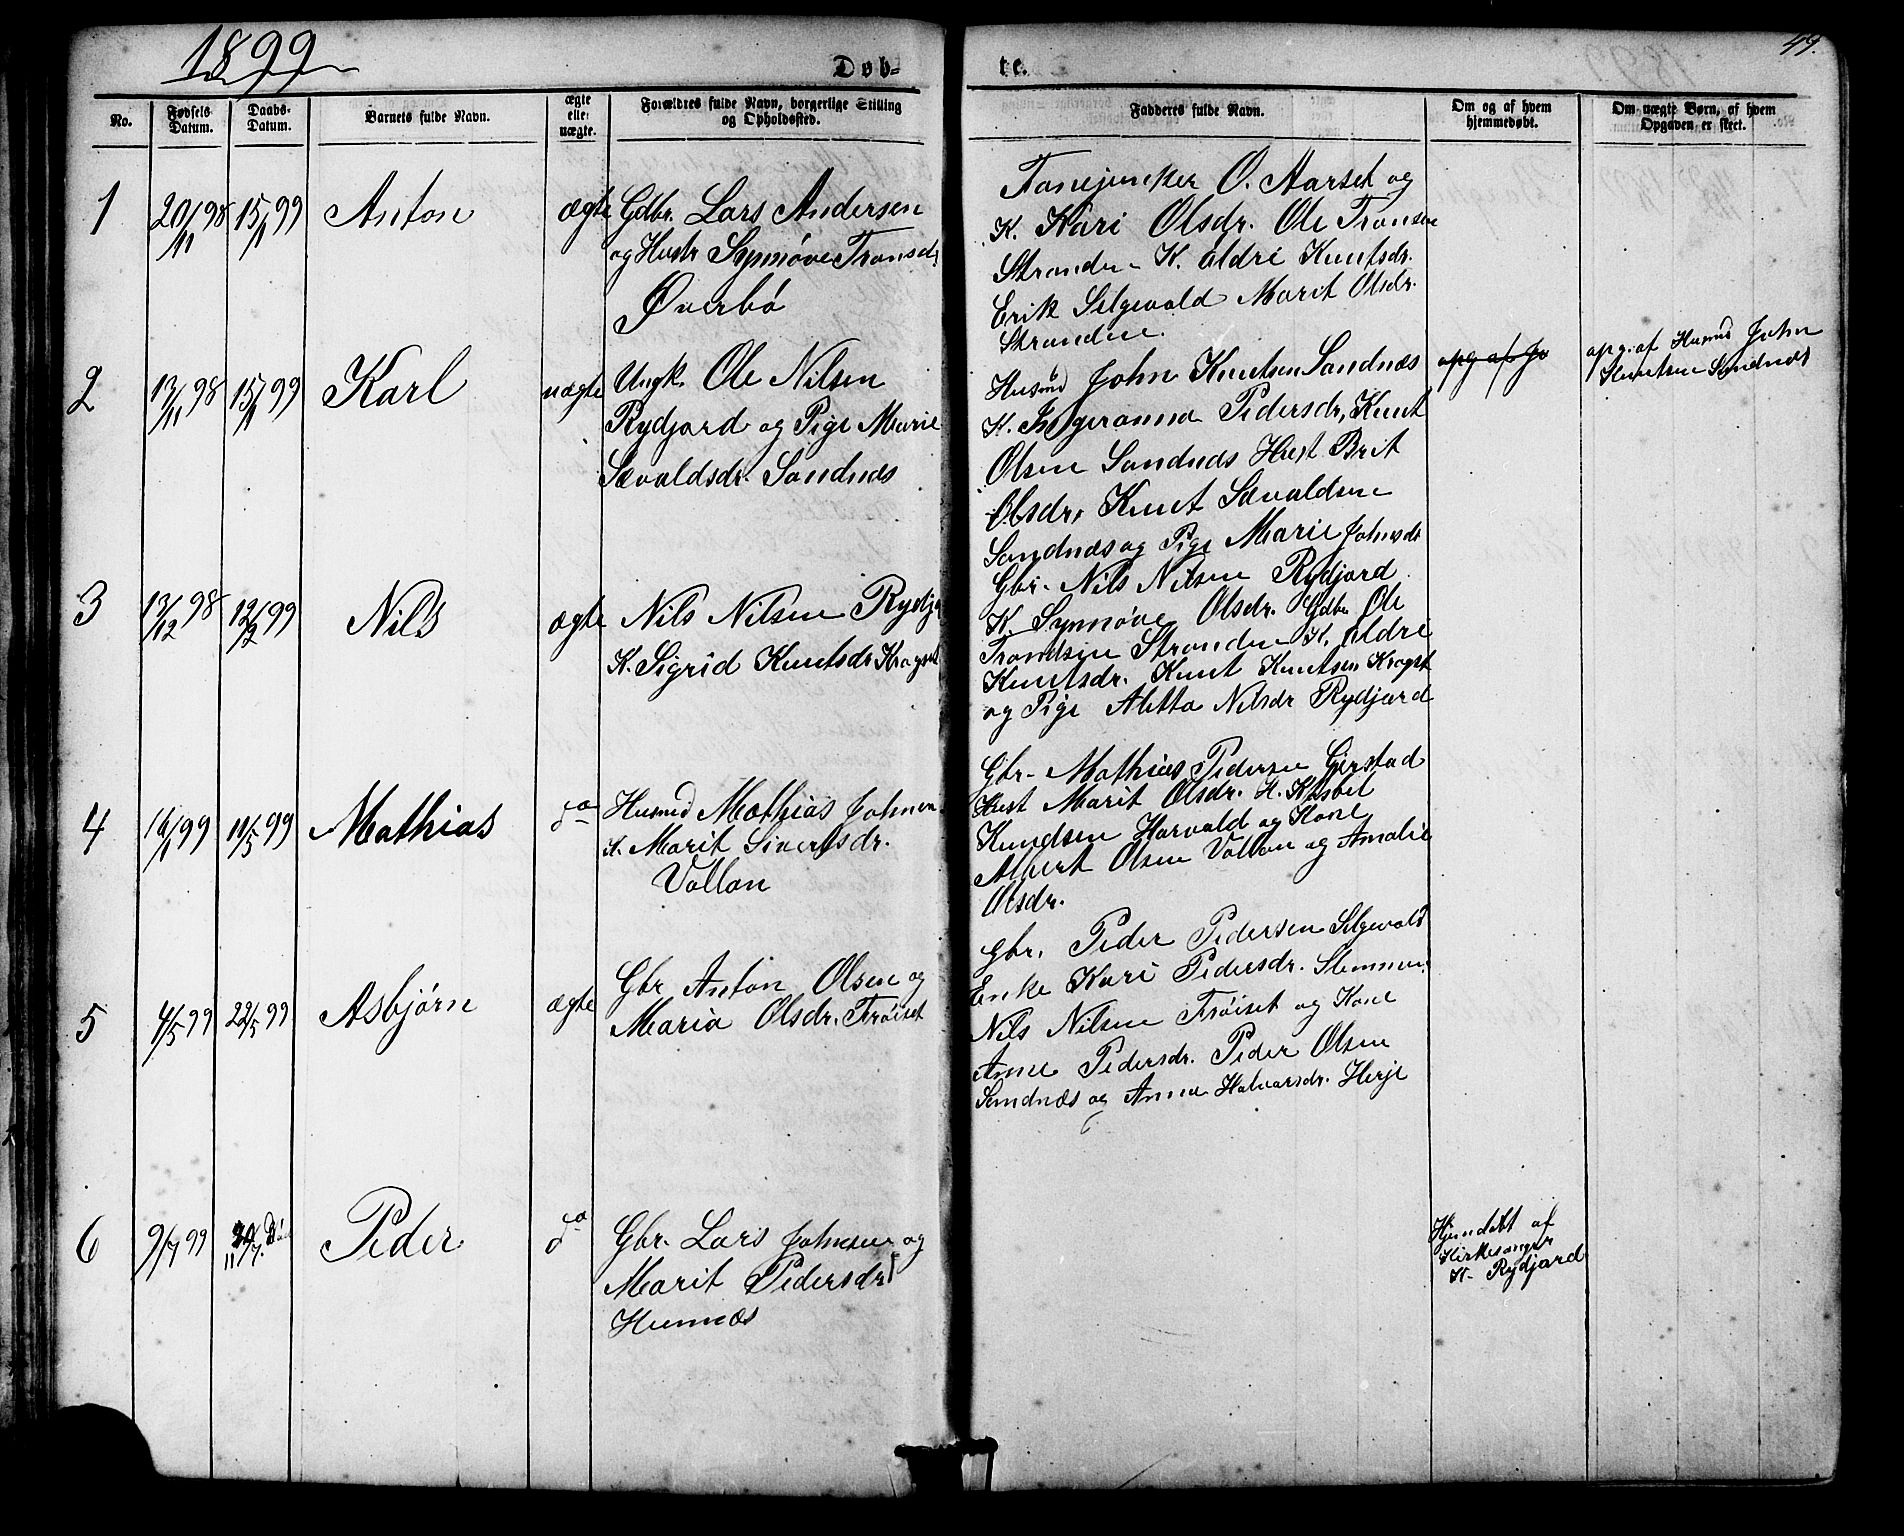 1899
49.
Døb-
te.
No.
Fødsels Datum.
Daabs-Datum.
Barnets fulde Navn.
ægte eller uægte.
Forældres fulde Navn, borgerlige Stilling og Opholdssted.
Faddernes fulde Navn.
Om og af hvem hjemmedøbt.
Om uægte Børn, af hvem Opgaven er skeet.
1
20/11 98
15/1 99
Anton
ægte
Gdbr. Lars Andersen
og Hustr Synnøve Tronsdr
Øverbø
Fanejunker O. Aarset og
K. Kari Olsdr. Ole Tronsen
Stranden K. Eldri Knutsdr.
Erik Selgevald Marit Olsdr.
Stranden.
2
13/11 98
15/1 99
Karl
uægte
Ungk. Ole Nilsen
Rydjord og Pige Marie
Sævaldsdr. Sandnæs
Husmd John Knutsen Sandnæs
K. Ingeranna Pedersdr, Knut
Olsen Sandnæs Hust Brit
Olsdr, Knut Sævaldsen
Sandnæs og Pige Marie Johnsdr
opg af Jo
opg. af Husmd John
Knutsen Sandnæs
3
13/12 98
12/2 99
Nils
ægte
Nils Nilsen Rydj
K. Sigrid Knutsdr Kragset
Gbr. Nils Nilsen Rydjord
K. Synnøve Olsdr. Gdbr. Ole
Trondsen Stranden K. Eldri
Knutsdr. Knut Knutsen Kragst
og Pige Aletta Nilsdr Rydjord
4
16/1 99
11/5 99
Mathias
do
Husmd Mathias Johnsen
K. Marit Sivertsdr.
Vollan
Gbr. Mathias Pedersen Gjerstad
Hust Marit Olsdr. H.
Knudsen Harvald og Kone
Albert Olsen Vollan og Amalie
Olsdr.
5
4/5 99
22/5 99
Asbjørn
ægte
Gbr Anton Olsen og
Maria Olsdr. Frøiset
Gbr. Peder Pedersen Selgevald
Enke Kari Pedersdr. Slemmen
Nils Nilsen Frøiset og Kone
Anne Pedersdr. Peder Olsen
Sandnæs og Anna Halvarsdr. Herje
6
9/7 99
11/7.
Peder
do
Gbr. Lars Johnsen og
Marit Pedersdr
Hunnæs
Hjemdøbt af
Kirkesanger
K. Rydjord